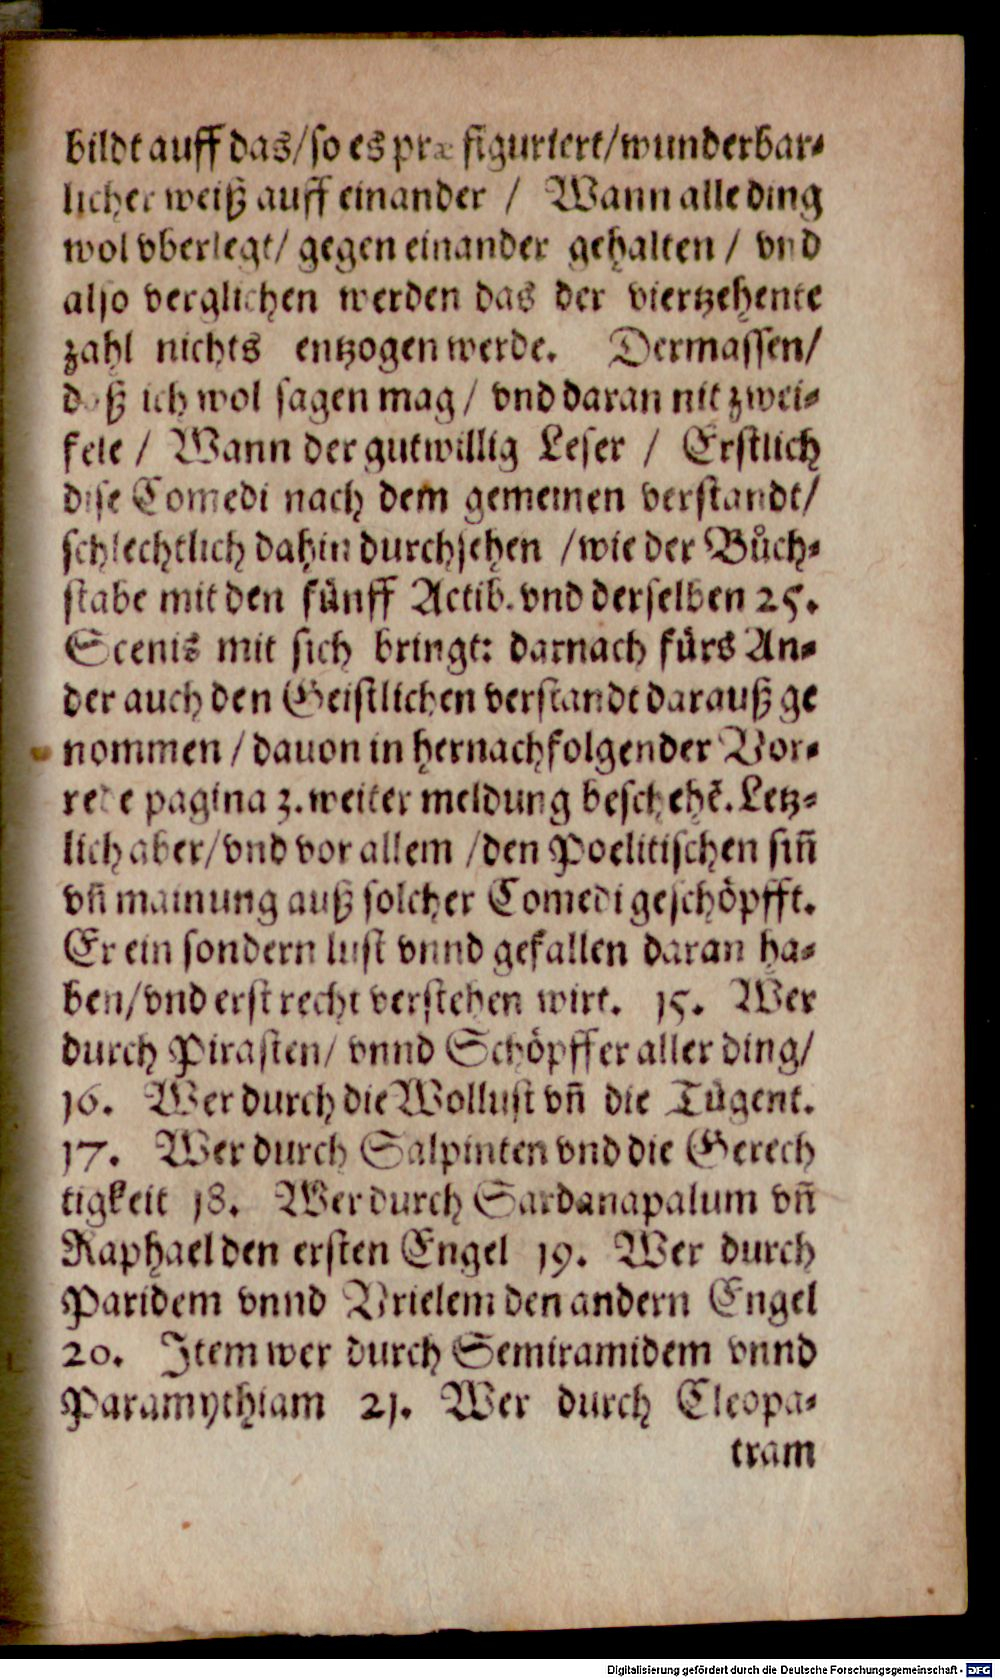 bildt auff das/so es præfiguriert/wunderbar-
licher weiß auff einander / Wann alle ding
wol vberlegt/ gegen einander gehalten / vnd
also verglichen werden das der viertzehente
zahl nichts entzogen werde. Dermassen/
daß ich wol sagen mag / vnd daran nit zwei-
fele / Wann der gutwillig Leser / Erstlich
dise Comedi nach dem gemeinen verstandt/
schlechtlich dahin durchsehen /wie der Bůch-
stabe mit den fünff Actib. vnd derselben 25.
Scenis mit sich bringt: darnach fürs An-
der auch den Geistlichen verstandt darauß ge
nommen / dauon in hernachfolgender Vor-
rede pagina 3. weiter meldung beschehẽ. Letz-
lich aber/vnd vor allem /den Poelitischen siñ
vñ mainung auß solcher Comedi geschöpfft.
Er ein sondern lust vnnd gefallen daran ha-
ben/vnd erst recht verstehen wirt. 15. Wer
durch Pirasten/ vnnd Schöpffer aller ding/
16. Wer durch die Wollust vñ die Tügent.
17. Wer durch Salpinten vnd die Gerech
tigkeit 18. Wer durch Sardanapalum vñ
Raphael den ersten Engel 19. Wer durch
Paridem vnnd Vrielem den andern Engel
20. Item wer durch Semiramidem vnnd
Paramythiam 21. Wer durch Cleopa-
tram
Digitalisierung gefördert durch die Deutsche Forschungsgemeinschaft - DFG